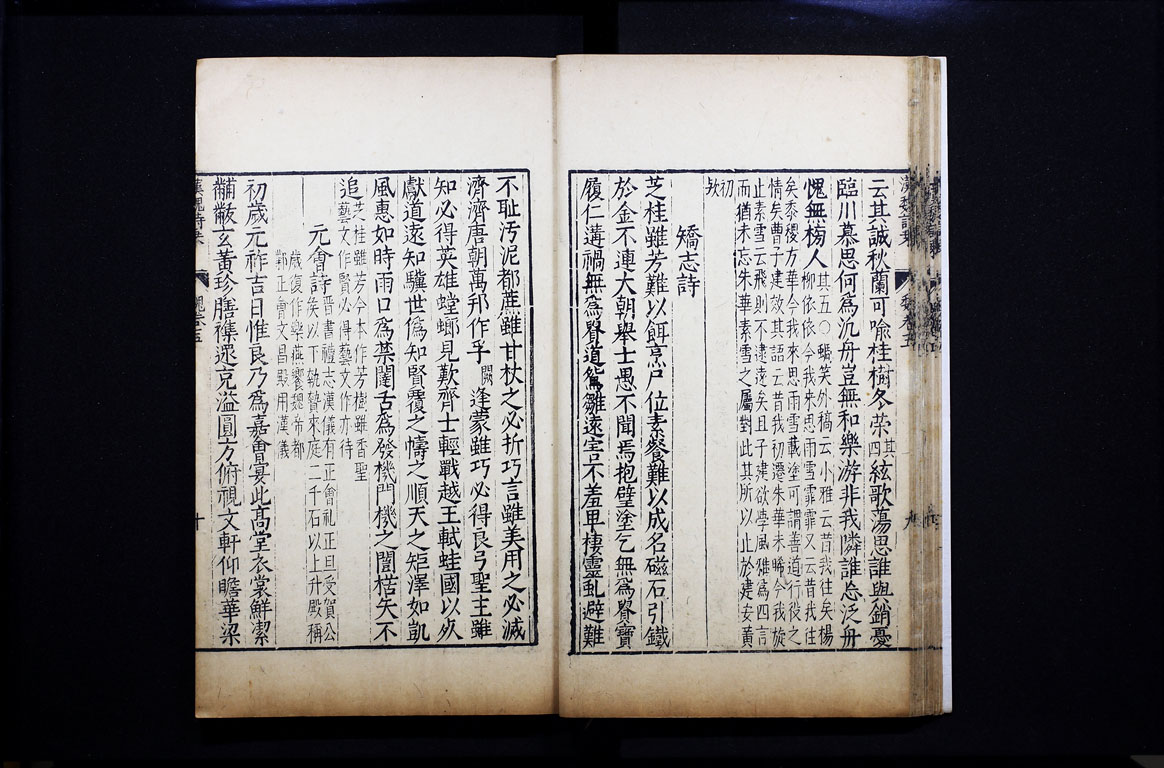 云其誠秋蘭可喻桂樹冬荣其四絃歌蕩思誰與銷憂
臨川慕思何爲汎舟豈無和樂游非我隣誰忘泛舟
愧無榜人其五○蟈笑外稿云小雅云昔我往矣楊
柳依依今我来思雨雪霏霏又云昔我往
矣黍稷方華今我来思雨雪載塗可謂善道行役之
情矣曹子建效其語云昔我初遷朱華未晞今我旋
止素雪云飛則不逮遠矣且子建欲學風雅爲四言
而猶未忘朱華素雪之屬對此其所以止於建安黄
初
欤
矯志詩
芝桂雖芳難以餌烹尸位素餐難以成名磁石引鐵
於金不連大朝舉士愚不聞焉抱璧塗乞無爲貴寳
履仁遘禍無爲貴道鴛雛遠害不羞卑棲靈虬避難
不耻汚泥都蔗雖甘杖之必折巧言雖美用之必滅
濟濟唐朝萬邦作孚闕逢蒙雖巧必得良弓聖主雖
知必得英雄螳螂見歎齊士輕戰越王軾蛙國以死
獻道遠知驥世僞知賢覆之幬之順天之矩澤如凱
風惠如時雨口爲禁闥舌爲發機門機之闓楛矢不
追芝桂雖芳今本作芳樹雖香聖
藝文作賢必得藝文作亦待
元會詩晋書禮志漢儀有正會礼正旦受賀公
侯以下執贄来庭二千石以上升殿稱
歲復作樂燕饗魏帝都
鄴正會文昌殿用漢儀
初歲元祚吉日惟良乃爲嘉會宴此髙堂衣裳鮮潔
黼黻玄黄珍膳雜遝充溢圓方俯視文軒仰瞻華梁
漢魏詩乘
魏卷五
九
十